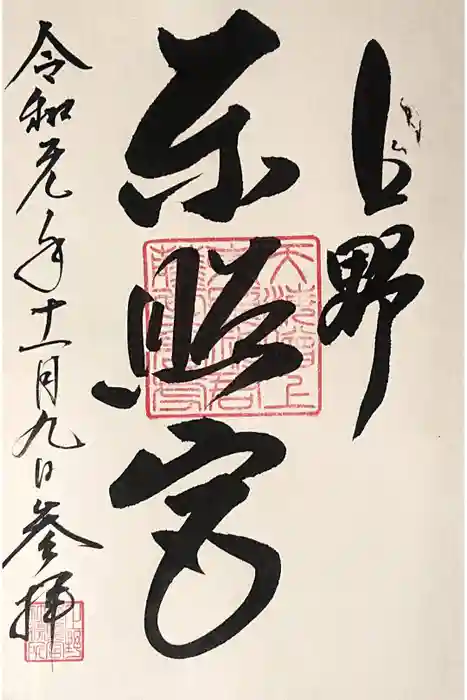 上野
東照宮
令和元年十一月九日参拝